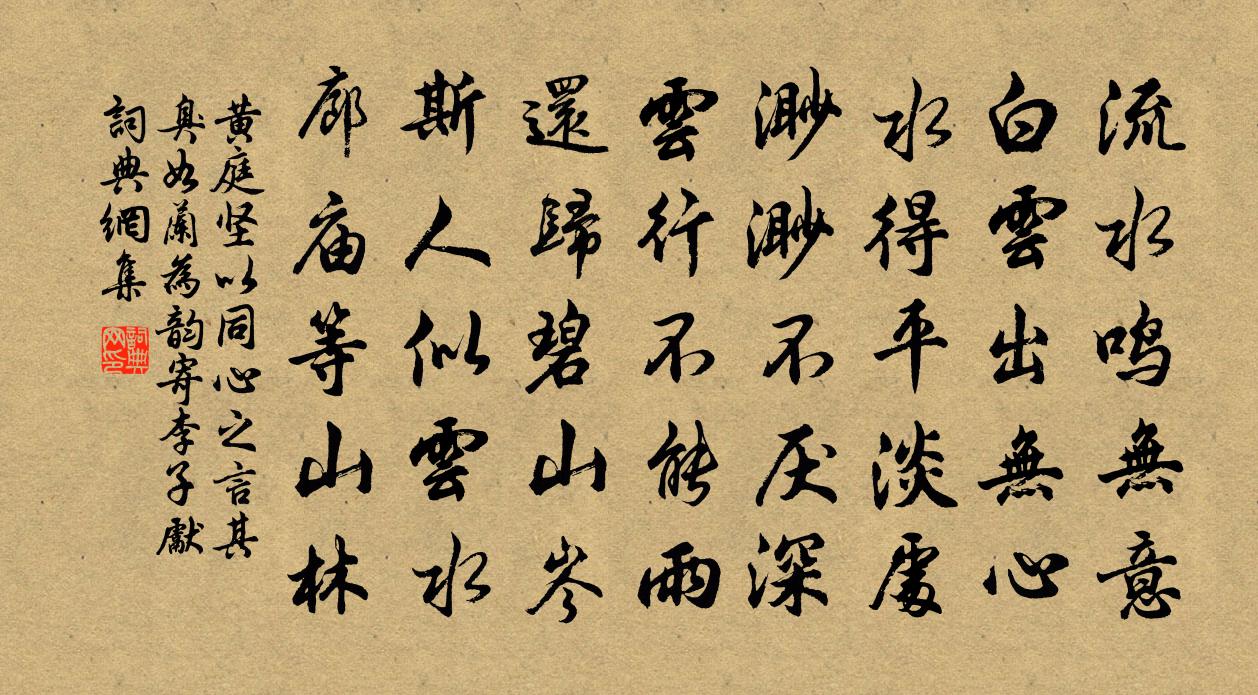 流水鸣無意
白雲出無心
水得平淡處
渺渺不厌深
雲行不能雨
還歸碧山岑
斯人似雲水
廊庙等山林
黄庭坚以同心之言其
臭如蘭為韵寄李子獻
詞典網集
詞典
网印